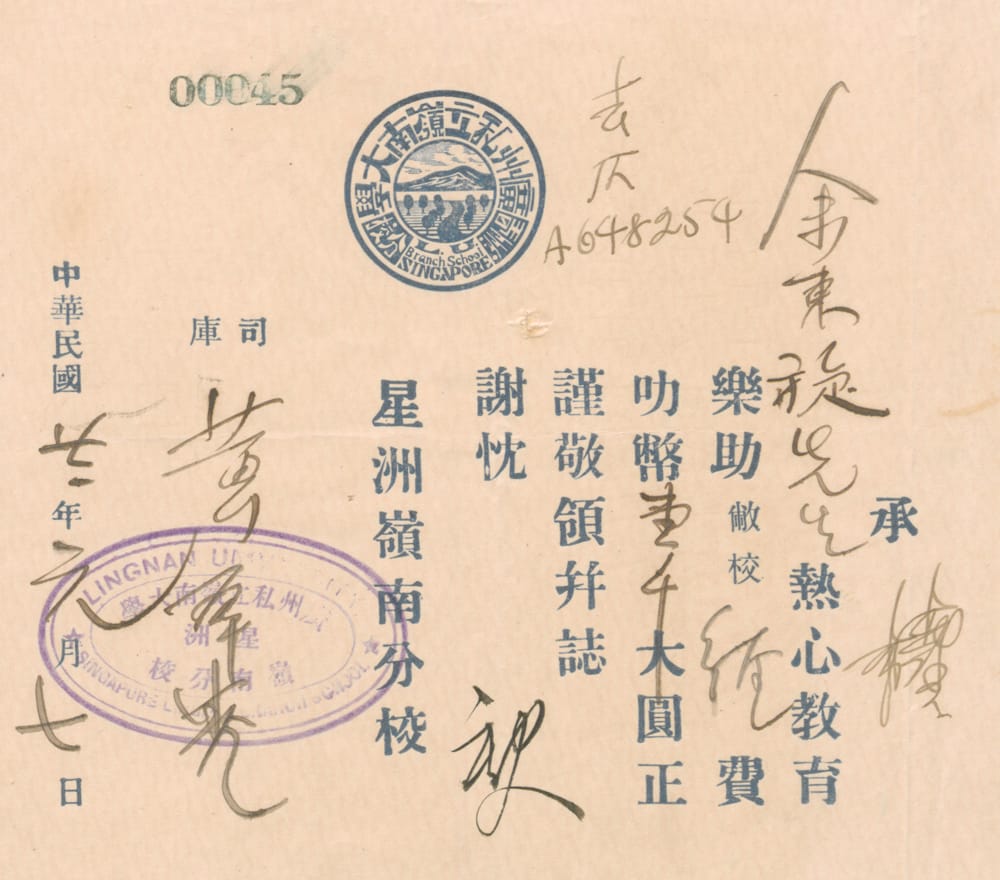 00045
廣州私立嶺南大學
星洲分校
L.U.
Branch School
SINGAPORE
A648254
承
余東旋先生熱心教育
樂助敝校經費
叻幣壹千大圓正
謹敬領幷誌
謝忱
星洲嶺南分校
司庫 黃
中華民國年元月七日
LINGNAN UNIVERSITY
州私立嶺南大學
星洲
嶺南分校
SINGAPORE BRANCH SCHOOL